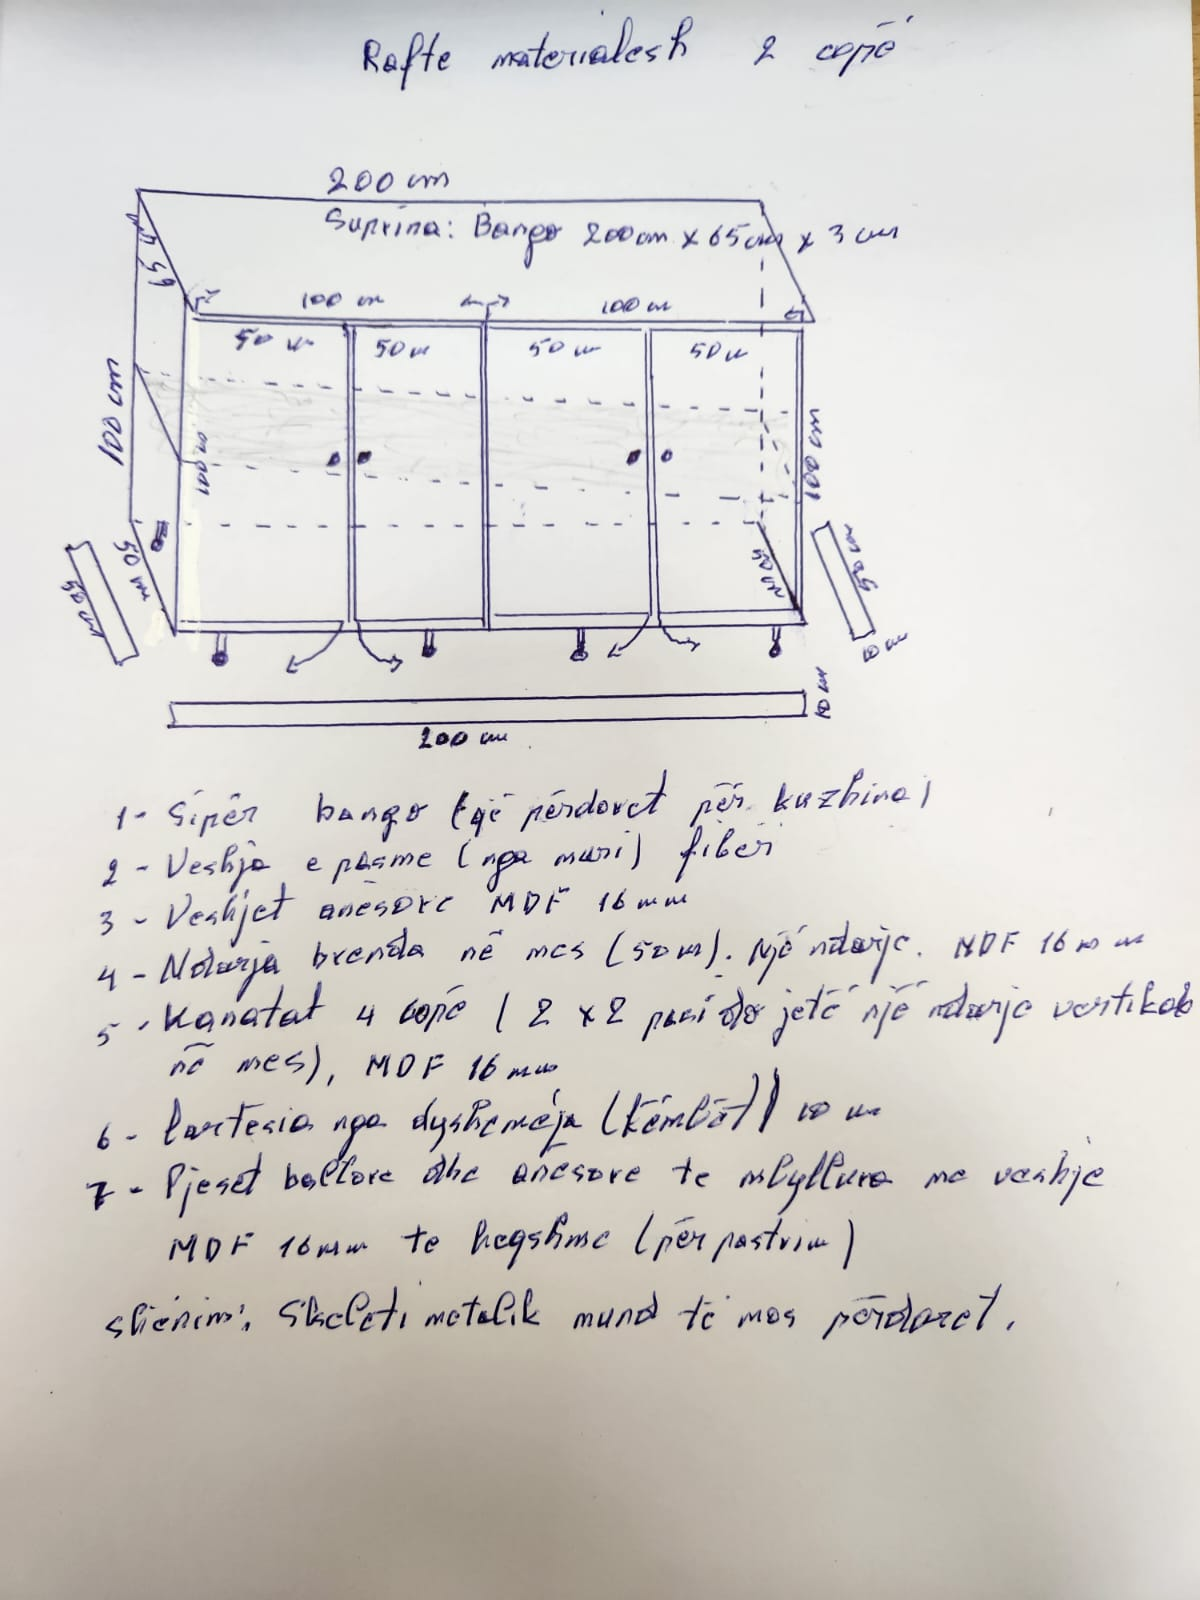 Rafte materialesh 2 copë
200 cm
Suprina: Bango 200cm x 65cm x 3 cm
65
100 cm 100 cm
50 cm 50 cm 50 cm 50 cm
100 cm
100 cm
100 cm
50 cm
50 cm
50 cm
50 cm
10 cm
10 cm
200 cm
1- Sipër bango (që përdoret për kuzhina)
2 - Veshja e pasme (nga muri) fibër
3 - Veshjet anësore MDF 16 mm
4 - Ndarja brenda në mes (50cm). Një ndarje. MDF 16 mm
5 - Kanatat 4 copë ( 2 x 2 pasi do jetë një ndarje vertikale
në mes), MDF 16 mm
6 - Lartesia nga dyshemeja (këmbët) 10 cm
7 - Pjeset ballore dhe anësore te mbyllura me veshje
MDF 16 mm te heqshme (për pastrim)
shënim: Skeleti metalik mund të mos përdoret.